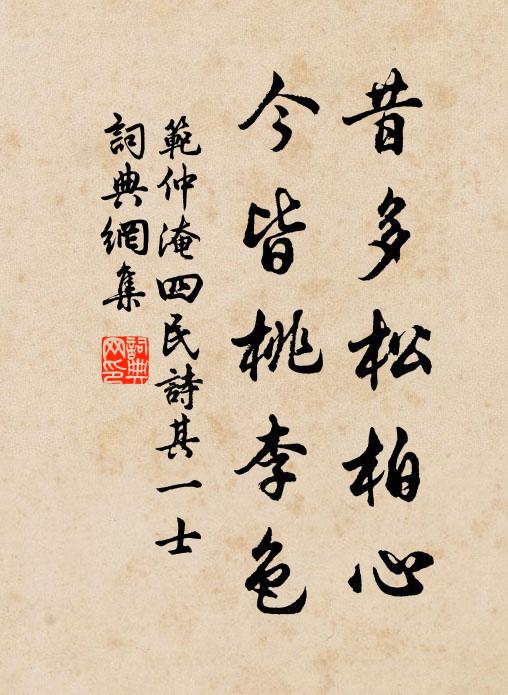 昔多松柏心
今皆桃李色
範仲淹四民詩其一士
詞典網集
詞典网印